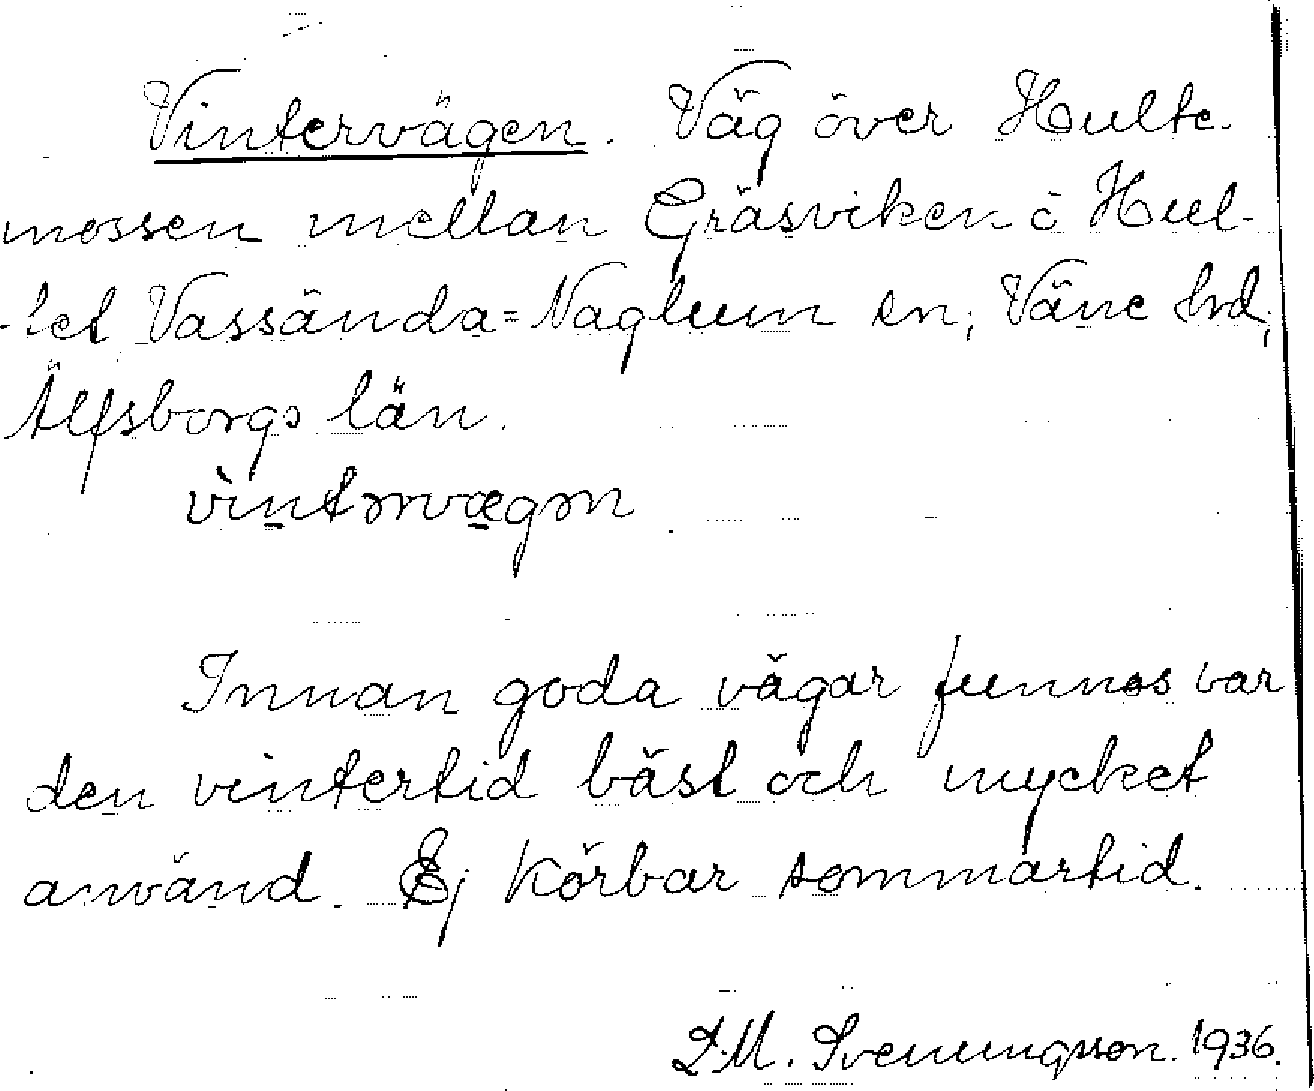 Vintervägen. Väg över Hulte-
mossen mellan Gräsviken o Hul-
-tet Vassända=Naglum sn, Väne hrd,
Älfsborgs län.
vìntərvægən
Innan goda vägar funnos var
den vintertid bäst och mycket
använd. Ej körbar sommartid.
D.M. Svenungsson. 1936.